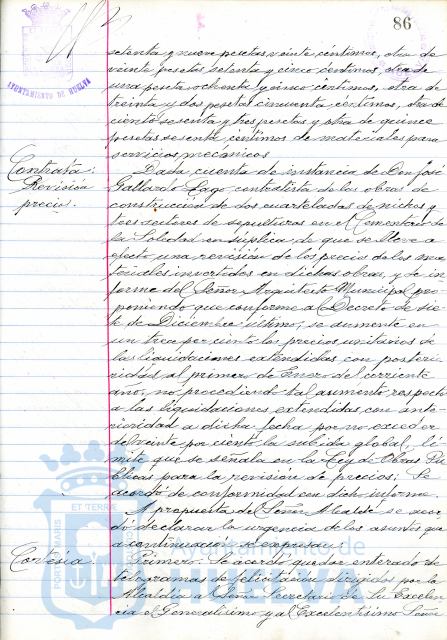 86
AYUNTAMIENTO DE HUELVA
setenta y nueve pesetas veinte céntimos, otra de
veinte pesetas setenta y cinco céntimos, otra de
una peseta ochenta y cinco céntimos, otra de
treinta y dos pesetas cincuenta céntimos, otra de
ciento sesenta y tres pesetas y otra de quince
pesetas sesenta céntimos de materiales para
servicios mecánicos.
Contrata:
Revisión
precios.
Dada cuenta de instancia de Don José
Gallardo contratista de las obras de
construcción de dos cuarteladas de nichos y
tres sectores de sepulturas en el Cementerio de
la Soledad en súplica de que se lleve a
efecto una revisión de los precios de los ma-
teriales invertidos en dichas obras, y de in-
forme del Señor Arquitecto Municipal pro-
poniendo que conforme al Decreto de sie-
te de Diciembre último, se aumente en
un trece por ciento los precios unitarios de
las liquidaciones extendidas con posterio-
ridad al primero de Enero del corriente
año, no procediendo tal aumento respecto
a las liquidaciones extendidas con ante-
rioridad a dicha fecha por no exceder
del veinte por ciento la subida global, lí-
mite que se señala en la Ley de Obras Pú-
blicas para la revisión de precios; Se
acordó de conformidad con dicho informe.
A propuesta del Señor Alcalde se acor-
dó declarar la urgencia de los asuntos que
a continuación se expresan:
Cortesía:
Primero: Se acordó quedar enterado de
telegramas de felicitación dirigidos por la
Alcaldía a Señor Secretario de Su Excelen-
cia el Generalísimo y al Excelentísimo Señor
PORTUS MARIS ET TERRAE
Ayuntamiento de
HUELVA